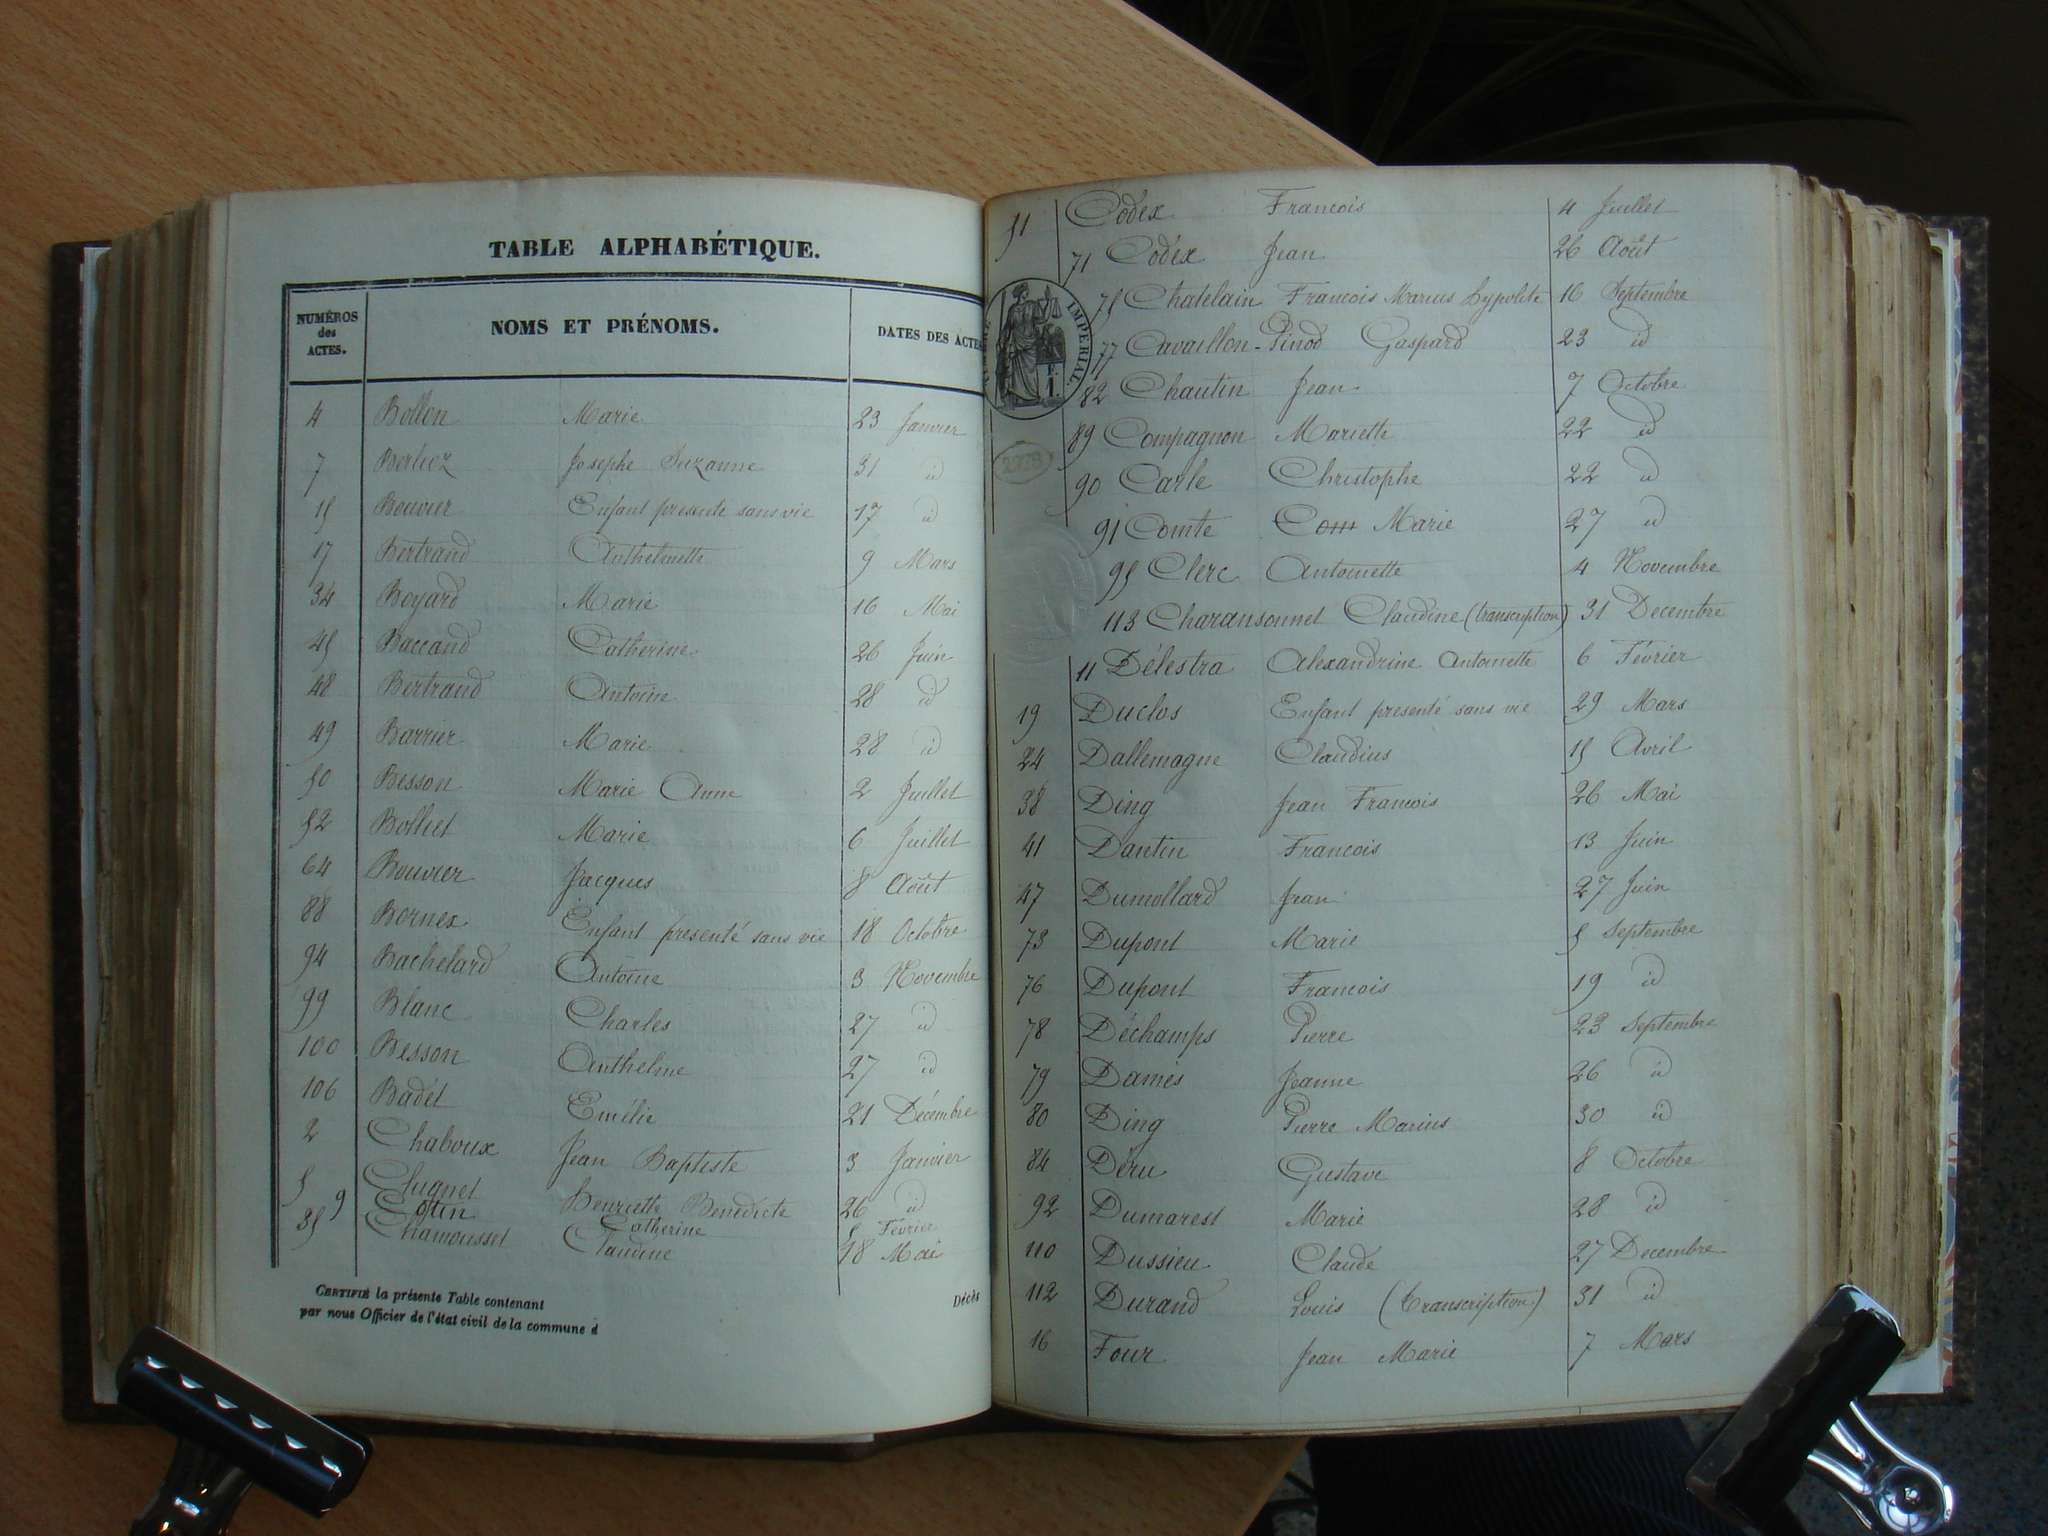 TABLE ALPHABÉTIQUE.
NUMÉROS des ACTES. NOMS ET PRÉNOMS. DATES DES ACTES
4 Bollon Marie 23 Janvier
7 Berlioz Josephe Suzanne 31 id
15 Bouvier Enfant presente sans vie 17 id
17 Bertrand Anthelmette 9 Mars
34 Boyard Marie 16 Mai
45 Baccand Catherine 26 Juin
48 Bertrand Antoine 28 id
49 Barrier Marie 28 id
50 Besson Marie Anne 2 Juillet
52 Bolliet Marie 6 Juillet
64 Bouvier Jacques 8 Août
88 Bornex Enfant presenté sans vie 18 Octobre
94 Bachelard Antoine 3 Novembre
99 Blanc Charles 27 id
100 Besson Anthelme 27 id
106 Badet Emélie 21 Décembre
2 Chaboux Jean Baptiste 3 Janvier
5 Clugnet Henriette Benédicte 26 id
9 Cottin Catherine 5 Février
35 Chamousset Claudine 18 Mai
CERTIFIÉ la présente Table contenant Décès
par nous Officier de l'état civil de la commune d
51 Codex Francois 4 Juillet
71 Codex Jean 26 Août
75 Chatelain Francois Marius hypolite 16 Septembre
77 Cavaillon-Pinod Gaspard 23 id
IMPERIAL.
82 Chautin Jean 7 Octobre
89 Compagnon Mariette 22 id
90 Carle Christophe 22 id
91 Comte Marie 27 id
95 Clerc Antoinette 4 Novembre
113 Charansonnet Claudine (transcription) 31 Decembre
11 Délestra Alexandrine Antoinette 6 Février
19 Duclos Enfant presenté sans vie 29 Mars
24 Dallemagne Claudius 15 Avril
38 Ding Jean Francois 26 Mai
41 Dantin Francois 13 Juin
47 Dumollard Jean 27 Juin
73 Dupont Marie 5 Septembre
76 Dupont Francois 19 id
78 Déchamps Pierre 23 Septembre
79 Damés Jeanne 26 id
80 Ding Pierre Marius 30 id
84 Déru Gustave 8 Octobre
92 Dumarest Marie 28 id
110 Dussieu Claude 27 Decembre
112 Durand Louis (Transcription) 31 id
16 Four Jean Marie 7 Mars